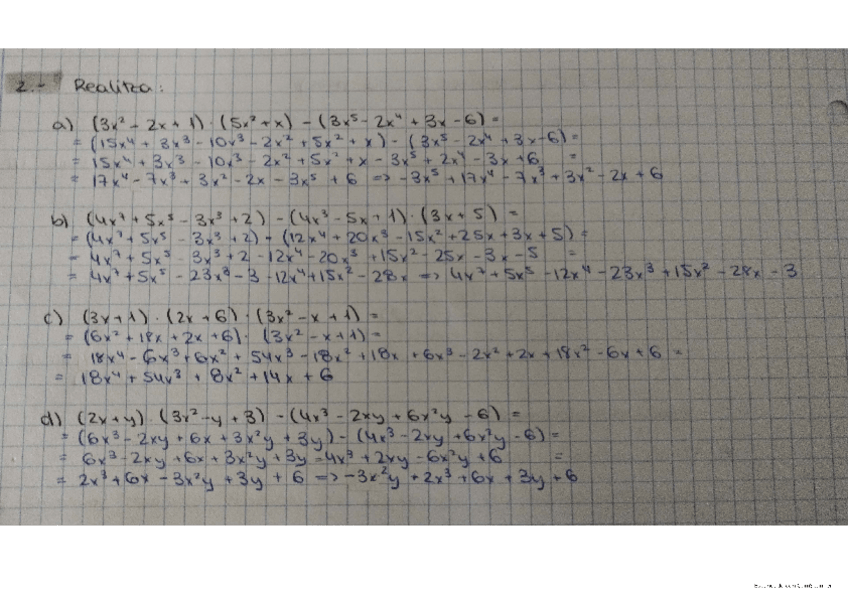 2.- Realitza:
a) (3x² - 2x + 1) · (5x² + x) - (3x⁵ - 2x⁴ + 3x - 6) =
= (15x⁴ + 3x³ - 10x³ - 2x² + 5x² + x) - (3x⁵ - 2x⁴ + 3x - 6) =
= 15x⁴ + 3x³ - 10x³ - 2x² + 5x² + x - 3x⁵ + 2x⁴ - 3x + 6 =
= 17x⁴ - 7x³ + 3x² - 2x - 3x⁵ + 6 => -3x⁵ + 17x⁴ - 7x³ + 3x² - 2x + 6
b) (4x⁷ + 5x⁵ - 3x³ + 2) - (4x³ - 5x + 1) · (3x + 5) =
= (4x⁷ + 5x⁵ - 3x³ + 2) - (12x⁴ + 20x³ - 15x² + 25x + 3x + 5) =
= 4x⁷ + 5x⁵ - 3x³ + 2 - 12x⁴ - 20x³ + 15x² - 25x - 3x - 5 =
= 4x⁷ + 5x⁵ - 23x³ - 3 - 12x⁴ + 15x² - 28x => 4x⁷ + 5x⁵ - 12x⁴ - 23x³ + 15x² - 28x - 3
c) (3x + 1) · (2x + 6) · (3x² - x + 1) =
= (6x² + 18x + 2x + 6) · (3x² - x + 1) =
= 18x⁴ - 6x³ + 6x² + 54x³ - 18x² + 18x + 6x³ - 2x² + 2x + 18x² - 6x + 6 =
= 18x⁴ + 54x³ + 8x² + 14x + 6
d) (2x + y) · (3x² - y + 3) - (4x³ - 2xy + 6x²y - 6) =
= (6x³ - 2xy + 6x + 3x²y + 3y) - (4x³ - 2xy + 6x²y - 6) =
= 6x³ - 2xy + 6x + 3x²y + 3y - 4x³ + 2xy - 6x²y + 6 =
= 2x³ + 6x - 3x²y + 3y + 6 => -3x²y + 2x³ + 6x + 3y + 6